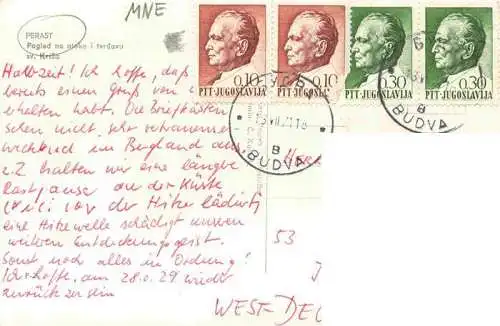 MNE
PERAST
Pogled na otoke i tvrđavu
Sv. Križa
Halbzeit! Ich hoffe, daß
bereits einen Gruß von
erhalten habt. Die Briefkästen
sehen nicht sehr vertrauens
im Bergland aus.
z.Z. halten wir eine längere
Rastpause an der Küste
vor der Hitze
eine Hitzewelle schädigt unseren
weiteren Entdeckungsgeist.
Sonst noch alles in Ordnung!
Ich hoffe, am wieder
zurück zu sein
0.10
PTT-JUGOSLAVIJA
0.10
PTT-JUGOSLAVIJA
0.30
PTT-JUGOSLAVIJA
0.30
PTT-JUGOSLAVIJA
B
BUDVA
B
BUDVA
53
WEST-DEU